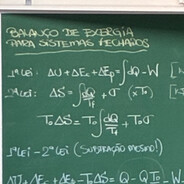 BALANÇO DE EXERGIA
PARA SISTEMAS FECHADOS
1ª Lei: ΔU + ΔEc + ΔEp = ∫dQ - W
2ª Lei: ΔS = ∫dQ/Tf + σ (xT₀)
T₀ΔS = T₀∫dQ/Tf + T₀σ
1ª Lei - 2ª Lei (SUBTRAÇÃO MESMO!)